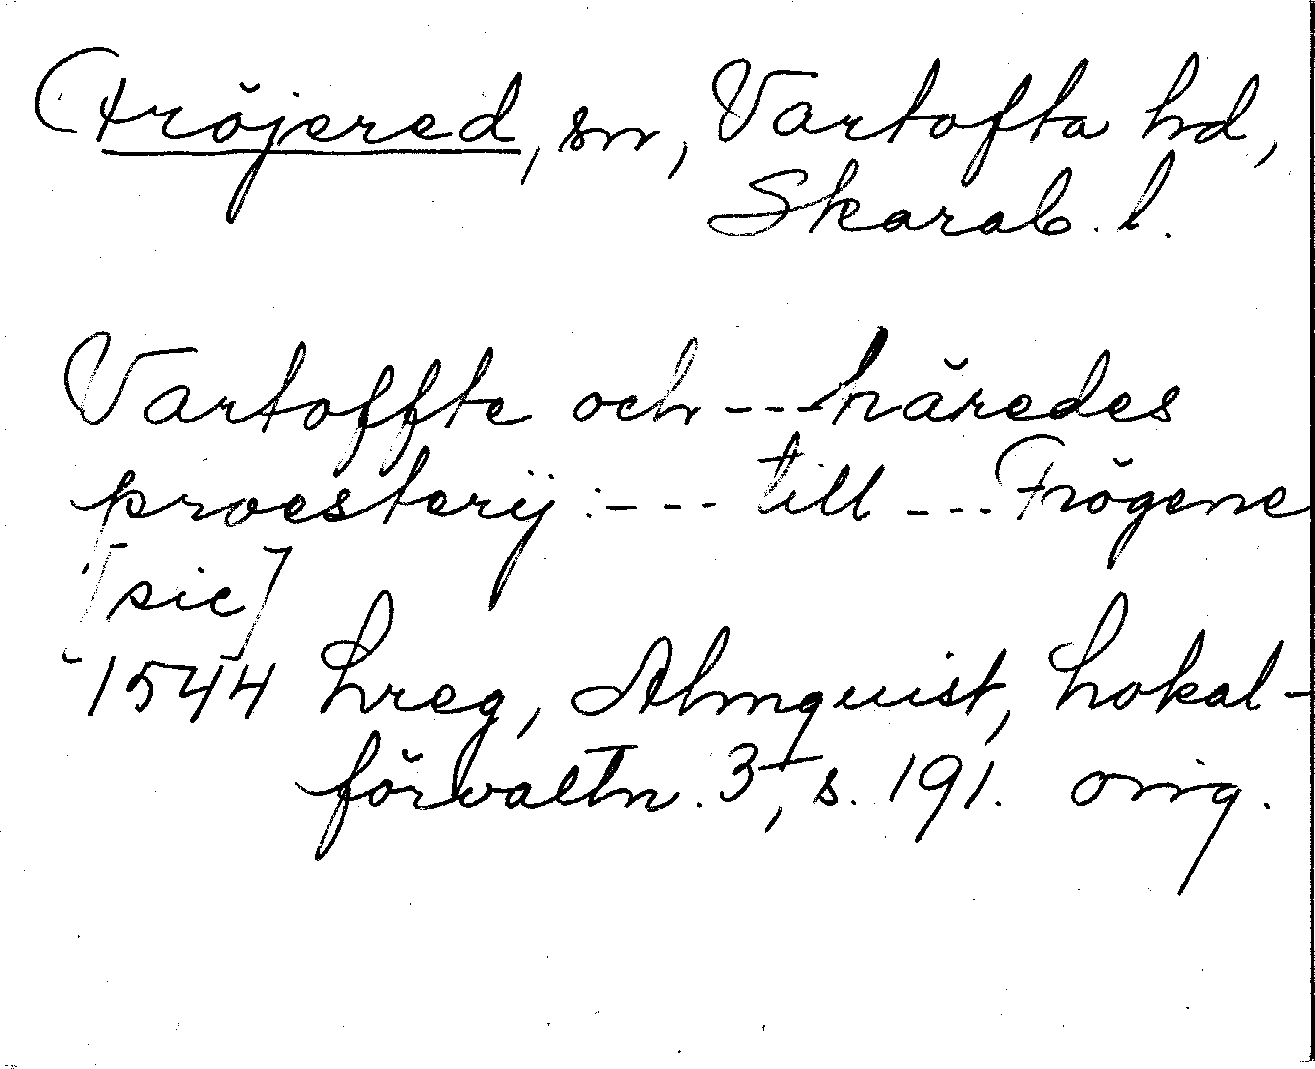 Fröjered, sn, Vartofta hd,
Skarab. l.
Vartoffte och --- häredes
proesterij: --- till --- Frögene
[sic]
1544 Lreg, Almquist, Lokal-
förvaltn. 3, s. 191. orig.